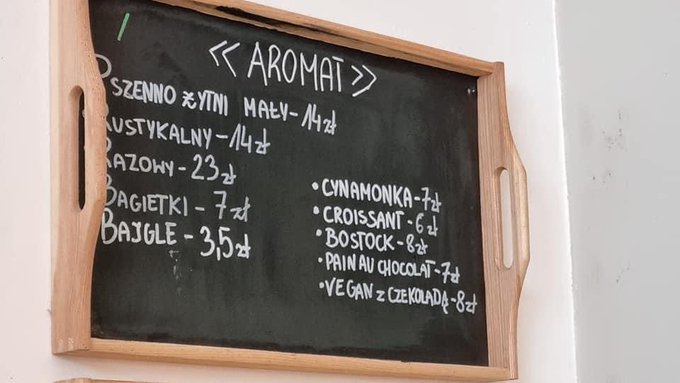 << AROMAT >>
PSZENNO ŻYTNI MAŁY - 14 zł
RUSTYKALNY - 14 zł
RAZOWY - 23 zł
BAGIETKI - 7 zł
BAJGLE - 3,5 zł
• CYNAMONKA - 7 zł
• CROISSANT - 6 zł
• BOSTOCK - 8 zł
• PAIN AU CHOCOLAT - 7 zł
• VEGAN z CZEKOLADĄ - 8 zł